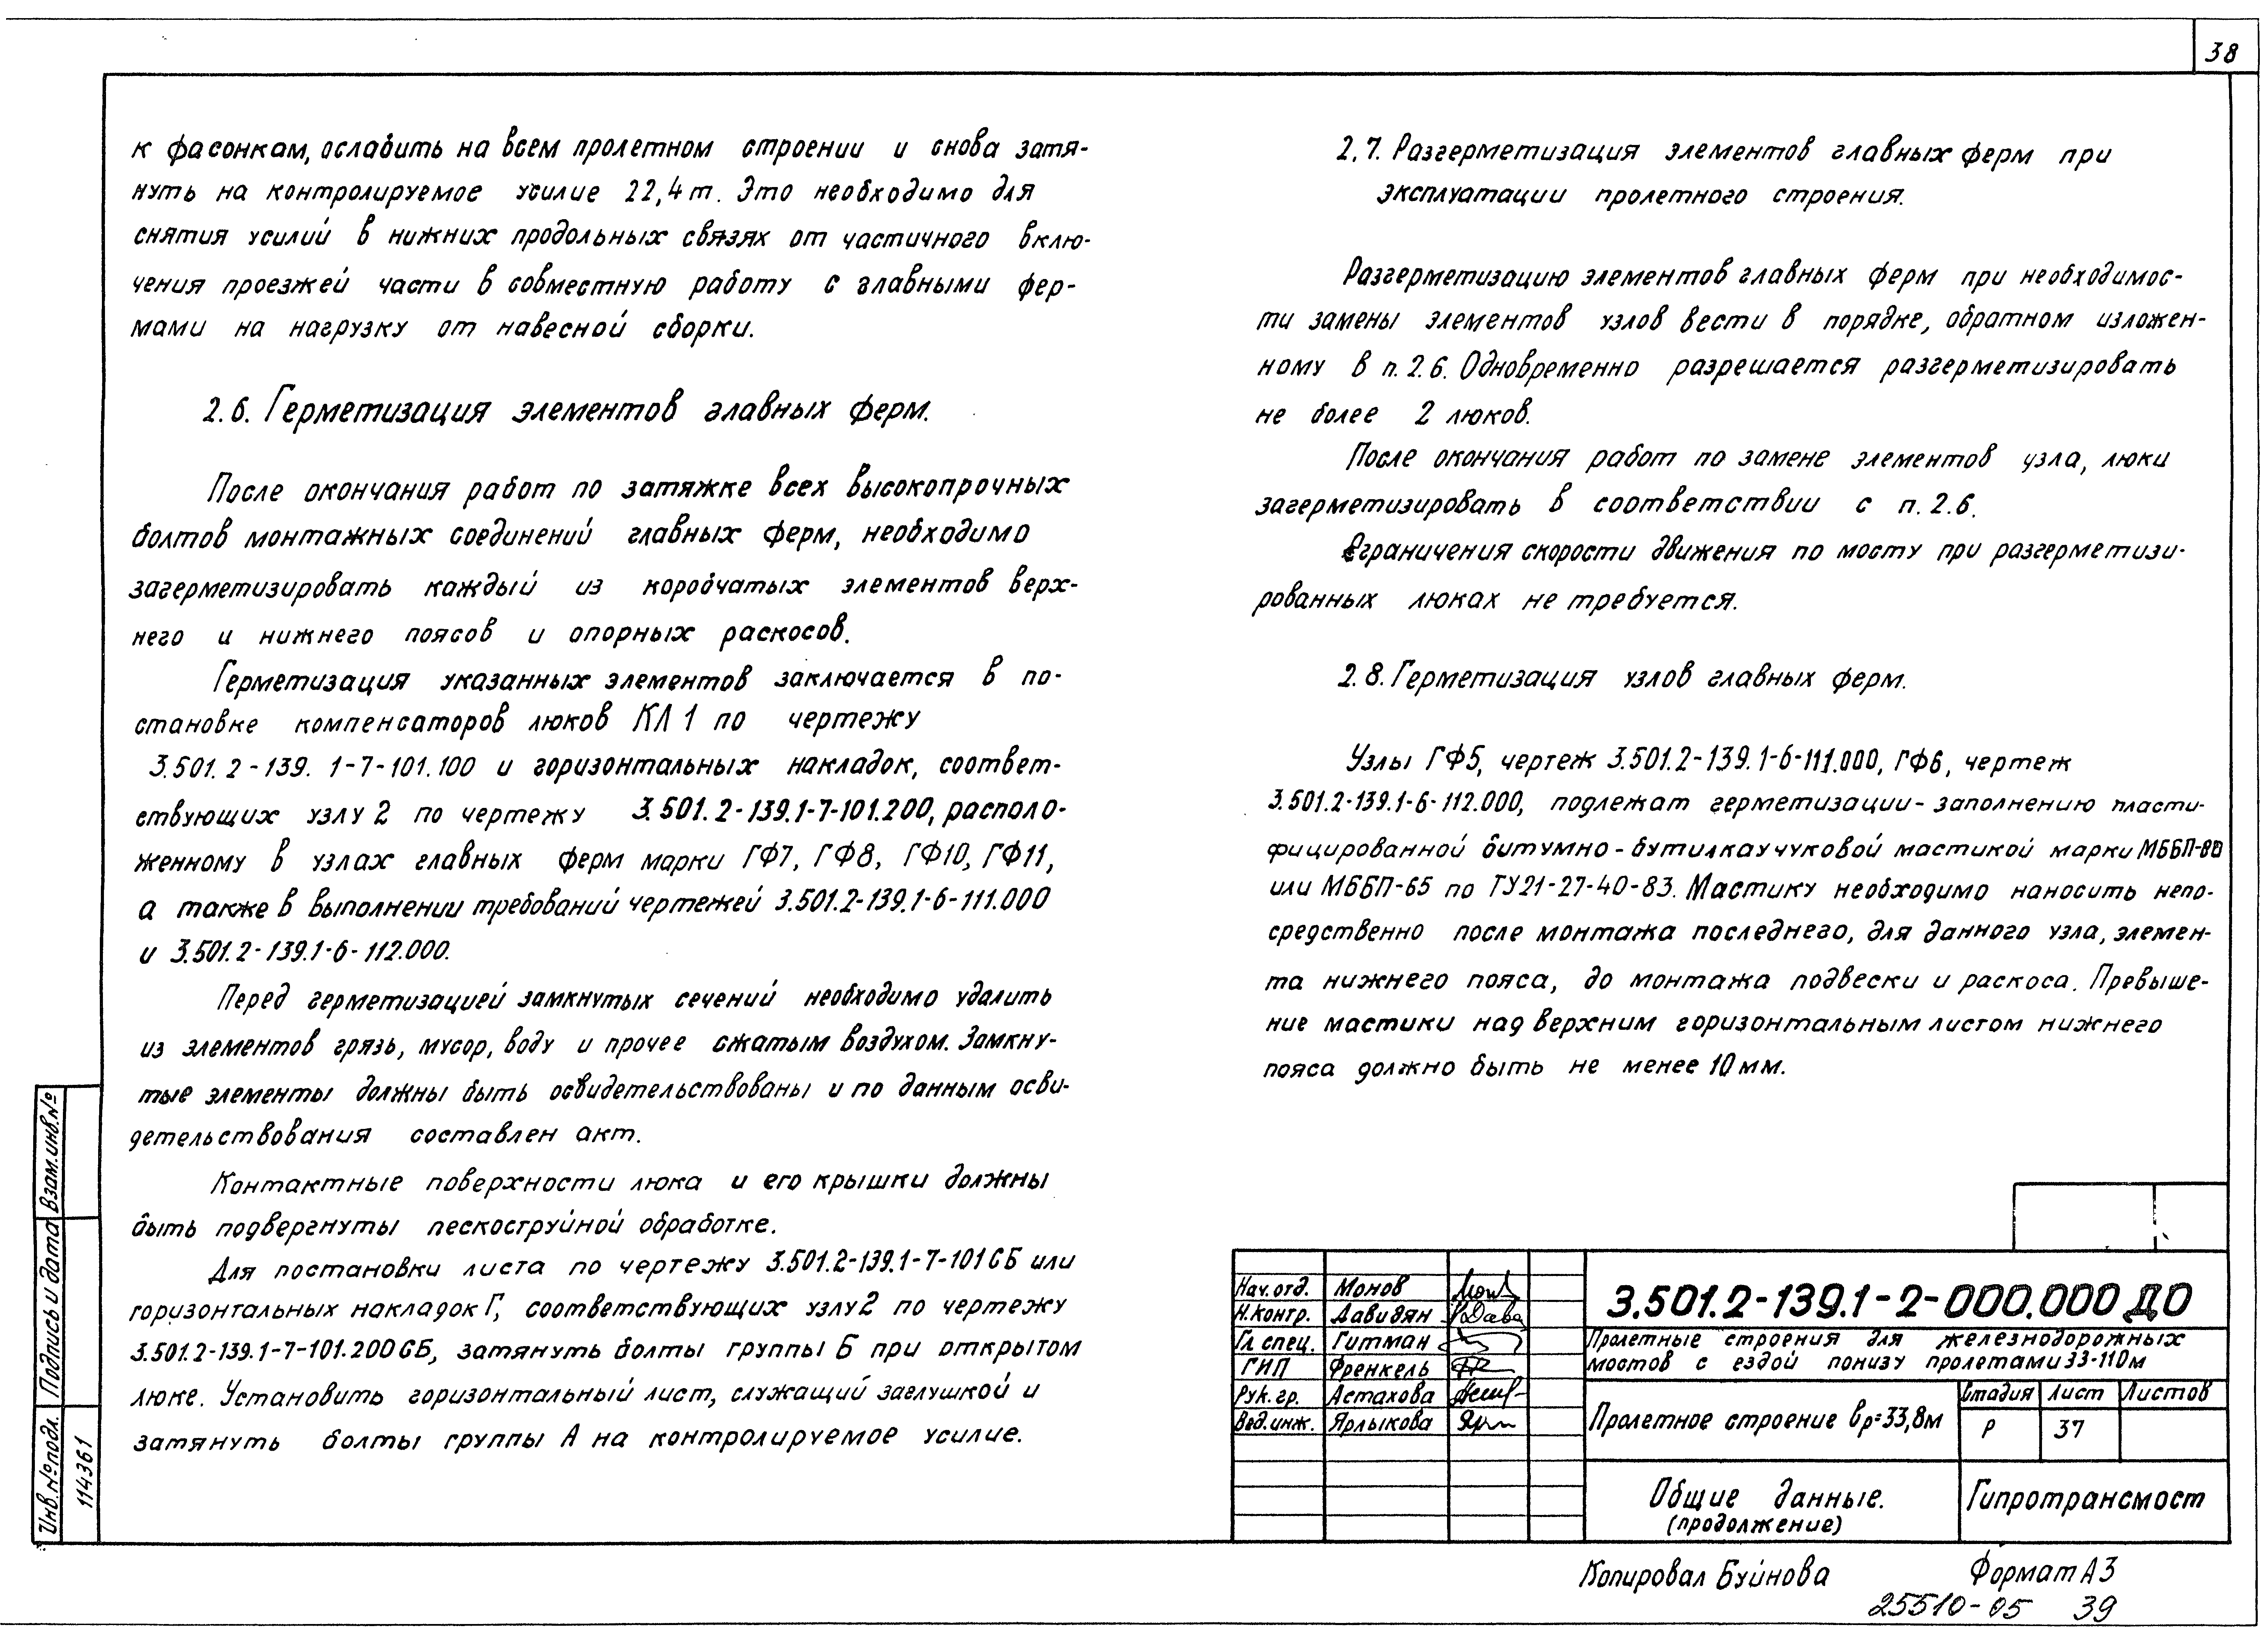 38
к фасонкам, ослабить на всем пролетном строении и снова затя-
нуть на контролируемое усилие 22,4т. Это необходимо для
снятия усилий в нижних продольных связях от частичного вклю-
чения проезжей части в совместную работу с главными фер-
мами на нагрузку от навесной сборки.
2.6. Герметизация элементов главных ферм.
После окончания работ по затяжке всех высокопрочных
болтов монтажных соединений главных ферм, необходимо
загерметизировать каждый из коробчатых элементов верх-
него и нижнего поясов и опорных раскосов.
Герметизация указанных элементов заключается в по-
становке компенсаторов люков КЛ1 по чертежу
3.501.2-139.1-7-101.100 и горизонтальных накладок, соответ-
ствующих узлу 2 по чертежу 3.501.2-139.1-7-101.200, располо-
женному в узлах главных ферм марки ГФ7, ГФ8, ГФ10, ГФ11,
а также в выполнении требований чертежей 3.501.2-139.1-6-111.000
и 3.501.2-139.1-6-112.000.
Перед герметизацией замкнутых сечений необходимо удалить
из элементов грязь, мусор, воду и прочее сжатым воздухом. Замкну-
тые элементы должны быть освидетельствованы и по данным осви-
детельствования составлен акт.
Контактные поверхности люка и его крышки должны
быть подвергнуты пескоструйной обработке.
Для постановки листа по чертежу 3.501.2-139.1-7-101СБ или
горизонтальных накладок Г, соответствующих узлу 2 по чертежу
3.501.2-139.1-7-101.200СБ, затянуть болты группы Б при открытом
люке. Установить горизонтальный лист, служащий заглушкой и
затянуть болты группы А на контролируемое усилие.
2.7. Разгерметизация элементов главных ферм при
эксплуатации пролетного строения.
Разгерметизацию элементов главных ферм при необходимос-
ти замены элементов узлов вести в порядке, обратном изложен-
ному в п.2.6. Одновременно разрешается разгерметизировать
не более 2 люков.
После окончания работ по замене элементов узла, люки
загерметизировать в соответствии с п.2.6.
Ограничения скорости движения по мосту при разгерметизи-
рованных люках не требуется.
2.8. Герметизация узлов главных ферм.
Узлы ГФ5, чертеж 3.501.2-139.1-6-111.000, ГФ6, чертеж
3.501.2-139.1-6-112.000, подлежат герметизации-заполнению пласти-
фицированной битумно-бутилкаучуковой мастикой марки МББП-80
или МББП-65 по ТУ21-27-40-83. Мастику необходимо наносить непо-
средственно после монтажа последнего, для данного узла, элемен-
та нижнего пояса, до монтажа подвески и раскоса. Превыше-
ние мастики над верхним горизонтальным листом нижнего
пояса должно быть не менее 10мм.
Нач.отд. Монов
Н.контр. Давидян
Гл спец. Гитман
ГИП Френкель
Рук.гр. Астахова
Вед.инж. Ярлыкова
3.501.2-139.1-2-000.000 ДО
Пролетные строения для железнодорожных
мостов с ездой понизу пролетами 33-110м
Пролетное строение ℓр=33,8м
Стадия Лист Листов
Р 37
Общие данные.
(продолжение)
Гипротрансмост
Инв.№подл. Подпись и дата Взам.инв.№
114361
Копировал Буйнова Формат А3
25510-05 39